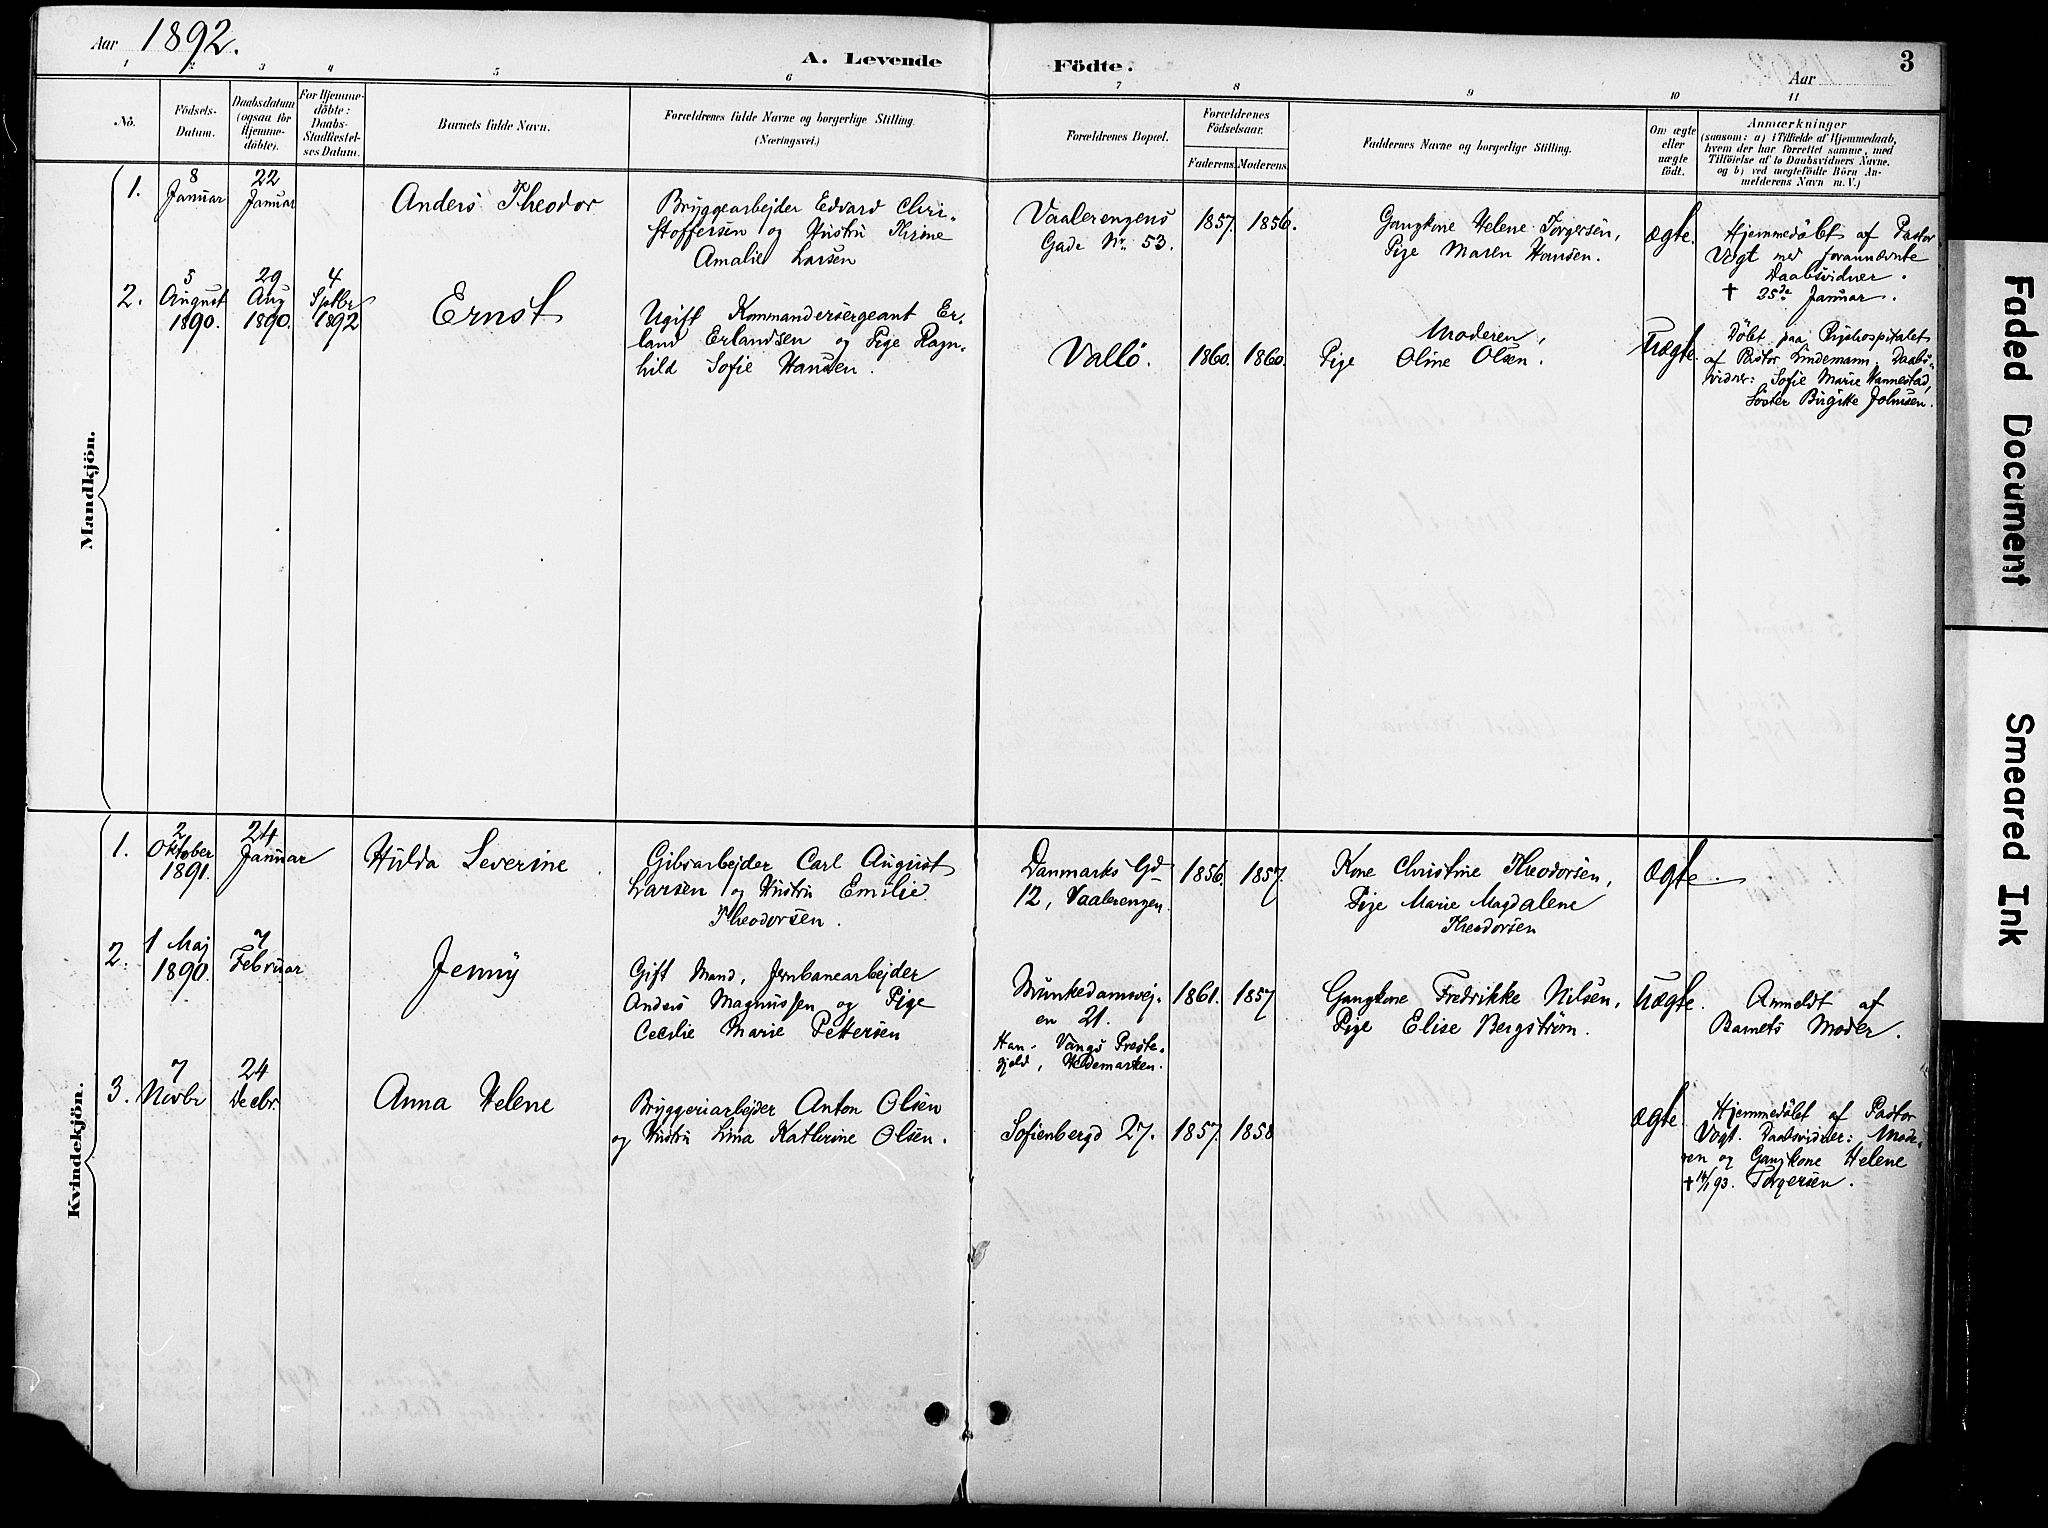 Aar 1892.
A. Levende Födte.
Aar
3
1 2 3 4 5 6 7 8 9 10 11
No.
Födsels-
Datum.
Daabsdatum
(ogsaa for
Hjemme-
döbte).
For Hjemme-
döbte:
Daabs-
Stadfæstel-
ses Datum.
Barnets fulde Navn.
Forældrenes fulde Navne og borgerlige Stilling.
(Næringsvei.)
Forældrenes Bopæl.
Forældrenes
Födselsaar.
Faderens.
Moderens.
Faddernes Navne og borgerlige Stilling.
Om ægte
eller
uægte
födt.
Anmærkninger
(saasom: a) i Tilfælde af Hjemmedaab,
hvem der har forrettet samme, med
Tilföielse af to Daabsvidners Navne,
og b) ved uægtefödte Börn An-
melderens Navn m. V.)
Mandkjön.
1.
8
Januar
22
Januar
Anders Theodor
Bryggearbejder Edvard Chri-
stoffersen og Hustru Karine
Amalie Larsen
Vaalerengens
Gade No. 53.
1857.
1856.
Gangkone Helene Torgersen,
Pige Maren Hansen.
ægte.
Hjemmedøbt af Pastor
Vogt med forannævnte
Daabsvidner.
† 25de Januar.
2.
5
August
1890.
29
Aug
1890.
4
Septbr
1892
Ernst
Ugift Kommandersergeant Er-
land Erlandsen og Pige Ragn-
hild Sofie Hansen.
Vallö.
1860.
1860.
Moderen,
Pige Oline Olsen.
Uægte.
Döbt paa Righospitalet
af Pastor Lindemann. Daabs-
vidner: Sofie Marie Hannestad,
Söster Birgitte Johnsen.
Kvindekjön.
1.
2
Oktober
1891.
24
Januar
Hulda Severine
Gibsarbejder Carl August
Larsen og Hustru Emilie
Theodorsen.
Danmarks Gd
12, Vaalerengen.
1856.
1857.
Kone Christine Theodorsen,
Pige Marie Magdalene
Theodorsen
ægte.
2.
1 Maj
1890.
7
Februar
Jenny
Gift Mand, Jernbanearbejder
Anders Magnussen og Pige
Cecilie Marie Pettersen
Munkedamsvej-
en 21.
Han. Vangs Præste-
gjeld, Hedemarken.
1861.
1857
Gangkone Fredrikke Nilsen,
Pige Elise Bergström.
uægte.
Anmeldt af
Barnets Moder.
3.
7
Novbr
24
Decbr.
Anna Helene
Bryggeriarbejder Anton Olsen
og Hustru Lina Kathrine Olsen.
Sofienbergd 27.
1857.
1858
ægte.
Hjemmedøbt af Pastor
Vogt. Daabsvidner: Mode-
ren og Gangkone Helene
† 14/1 93. Torgersen.
Faded Document
Smeared Ink